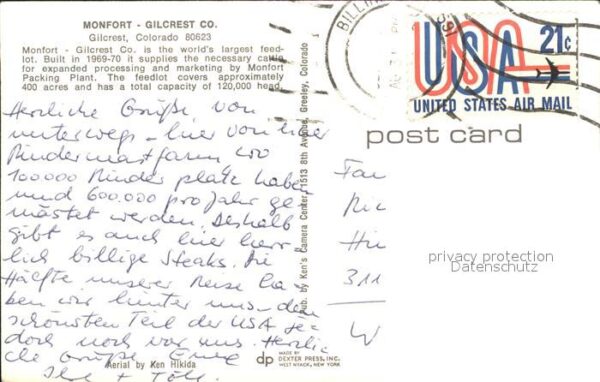 MONFORT - GILCREST CO.
Gilcrest, Colorado 80623
Monfort - Gilcrest Co. is the world's largest feed-
lot. Built in 1969-70 it supplies the necessary cattle
for expanded processing and marketing by Monfort
Packing Plant. The feedlot covers approximately
400 acres and has a total capacity of 120,000 head.
Herzliche Grüße von
unterwegs - hier von einer
Rindermastfarm wo
100000 Rinder platz haben
und 600.000 pro Jahr ge-
mästet werden. Deshalb
gibt es auch hier herr-
lich billige Steaks. Die
Hälfte unserer Reise ha-
ben wir hinter uns - den
schönsten Teil der USA je-
doch noch vor uns. Herzli-
che Grüße Eure
Aerial by Ken Hikida
Pub. by Ken's Camera Center, 1513 8th Avenue, Greeley, Colorado
dp
MADE BY
DEXTER PRESS, INC.
WEST NYACK, NEW YORK
BILLIN
USA
21¢
UNITED STATES AIR MAIL
post card
Fam
Ric
Hin
311
W
privacy protection
Datenschutz